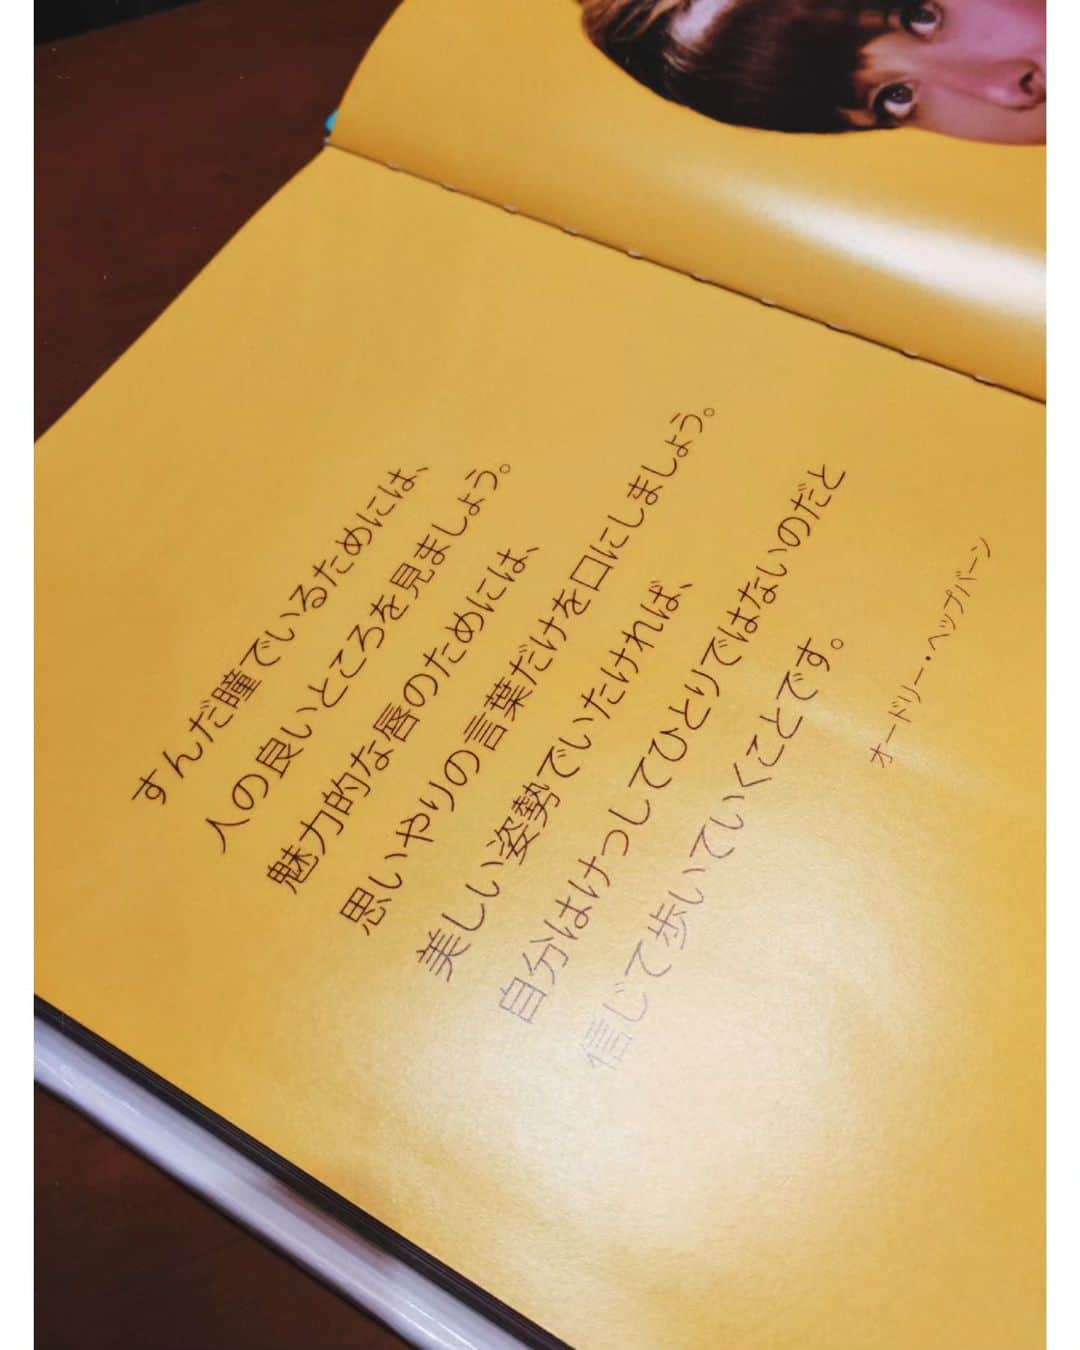 すんだ瞳でいるためには、
人の良いところを見ましょう。
魅力的な唇のためには、
思いやりの言葉だけを口にしましょう。
美しい姿勢でいたければ、
自分はけっしてひとりではないのだと
信じて歩いていくことです。
オードリー・ヘップバーン